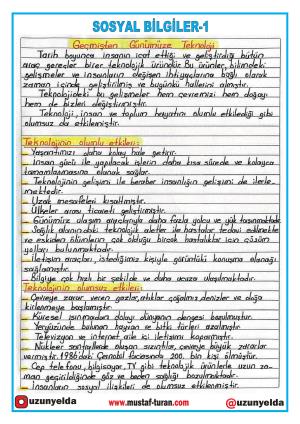 SOSYAL BİLGİLER-1
Geçmişten Günümüze Teknoloji
Tarih boyunca insanın icat ettiği ve geliştirdiği bütün
araç gereçler birer teknolojik üründür. Bu ürünler, bilimdeki
gelişmeler ve insanların değişen ihtiyaçlarına bağlı olarak
zaman içinde geliştirilmiş ve bugünkü hallerini almıştır.
Teknolojideki bu gelişmeler hem çevremizi hem doğayı
hem de bizleri değiştirmiştir.
Teknoloji, insan ve toplum hayatını olumlu etkilediği gibi
olumsuz da etkilemiştir.
Teknolojinin olumlu etkileri:
— Yaşantımızı daha kolay hale getirir.
— İnsan gücü ile yapılacak işlerin daha kısa sürede ve kolayca
tamamlanmasına olanak sağlar.
— Teknolojinin gelişimi ile beraber insanlığın gelişimi de ilerle-
mektedir.
— Uzak mesafeleri kısaltmıştır.
— Ülkeler arası ticareti geliştirmiştir.
— Günümüz ulaşım araçlarıyla daha fazla yolcu ve yük taşınmaktadır.
— Sağlık alanındaki teknolojik aletler ile hastalar tedavi edilmekte
ve eskiden ölümlerin çok olduğu birçok hastalıklar için çözüm
yolları bulunmaktadır.
— İletişim araçları, istediğimiz kişiyle görüntülü konuşma olanağı
sağlamıştır.
— Bilgiye çok hızlı bir şekilde ve daha ucuza ulaşılmaktadır.
Teknolojinin olumsuz etkileri:
— Çevreye zarar veren gazlar, atıklar çoğalmış denizler ve doğa
kirlenmeye başlamıştır.
— Küresel ısınmadan dolayı dünyanın dengesi bozulmuştur.
— Yeryüzünde bulunan hayvan ve bitki türleri azalmıştır.
— Televizyon ve internet aile içi iletişimi koparmıştır.
— Nükleer santrallerde oluşan sızıntılar, çevreye büyük zararlar
vermiştir. 1986'daki Çernobil faciasında 200. bin kişi ölmüştür.
— Cep telefonu, bilgisayar, TV gibi teknolojik ürünlerle uzun za-
man geçirildiğinde göz ve beden sağlığı bozulmaktadır.
— İnsanların sosyal ilişkileri de olumsuz etkilenmiştir.
@uzunyelda
www.mustafa-turan.com
@uzunyelda